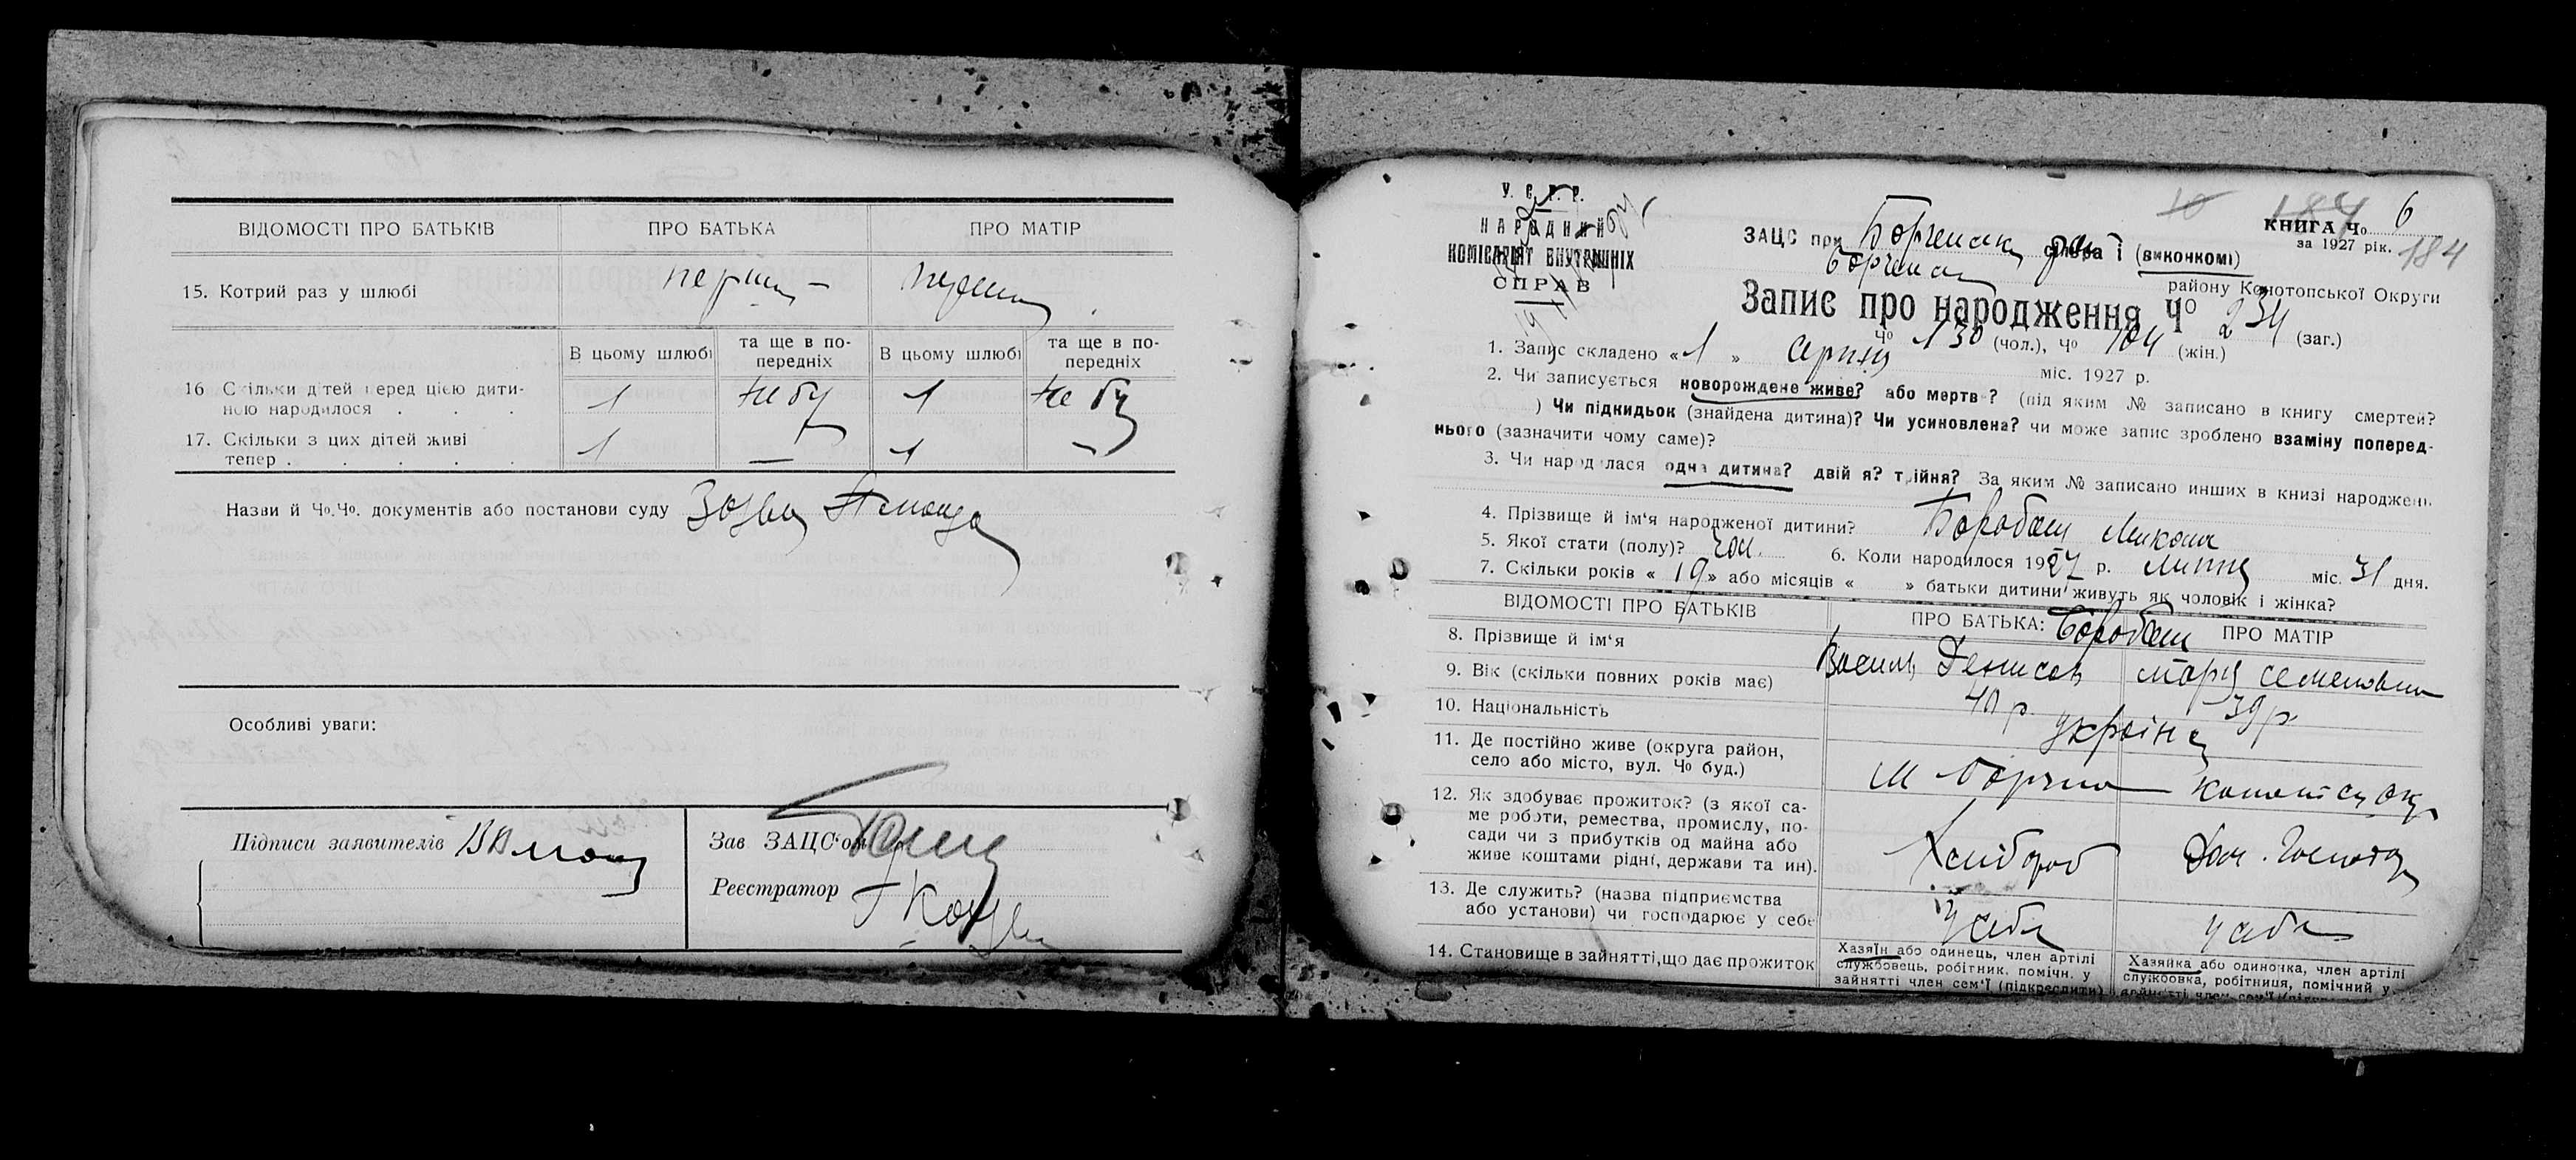 ВІДОМОСТІ ПРО БАТЬКІВ ПРО БАТЬКА ПРО МАТІР
15. Котрий раз у шлюбі
В цьому шлюбі та ще в попередніх В цьому шлюбі та ще в попередніх
16 Скільки дітей перед цією дити-
ною народилося . . . 1 не бу 1 не бу
17. Скільки з цих дітей живі
тепер . . . . . 1 — 1 —
Назви й Чо.Чо. документів або постанови суду
Особливі уваги:
Підписи заявителів
Зав ЗАЦС'ом
Реєстратор
У. С. Р. Р.
НАРОДНИЙ
КОМІСАРІЯТ ВНУТРІШНІХ
СПРАВ
10 184 6
КНИГА Чо
за 1927 рік. 184
ЗАЦС при (виконкомі)
району Конотопської Округи
Запис про народження Чо 234 (заг.)
Чо 130 (чол.), Чо 104 (жін.)
1. Запис складено «1» серпня міс. 1927 р.
2. Чи записується новорождене живе? або мертве? (під яким № записано в книгу смертей?
) Чи підкидьок (знайдена дитина)? Чи усиновлена? чи може запис зроблено взаміну поперед-
нього (зазначити чому саме)?
3. Чи народилася одна дитина? двійня? трійня? За яким № записано инших в книзі народжень
4. Прізвище й ім'я народженої дитини? Барабаш Микола
5. Якої стати (полу)? чол. 6. Коли народилося 1927 р. липня міс. 31 дня.
7. Скільки років «19» або місяців « » батьки дитини живуть як чоловік і жінка?
ВІДОМОСТІ ПРО БАТЬКІВ ПРО БАТЬКА: Барабаш ПРО МАТІР
8. Прізвище й ім'я Василь Денисов Марія Семеновна
9. Вік (скільки повних років має) 40 р. 39 р.
10. Національність україн
11. Де постійно живе (округа район,
село або місто, вул. Чо буд.) М Борзна
12. Як здобуває прожиток? (з якої са-
ме роботи, ремества, промислу, по-
сади чи з прибутків од майна або
живе коштами рідні, держави та ин). Хлібороб Дом. Господ
13. Де служить? (назва підприємства
або установи) чи господарює у себе У себе у себе
14. Становище в зайнятті, що дає прожиток
Хазяїн або одинець, член артілі
службовець, робітник, помічн. у
зайнятті член сем'ї (підкреслити)
Хазяйка або одиночка, член артілі
службовка, робітниця, помічний у